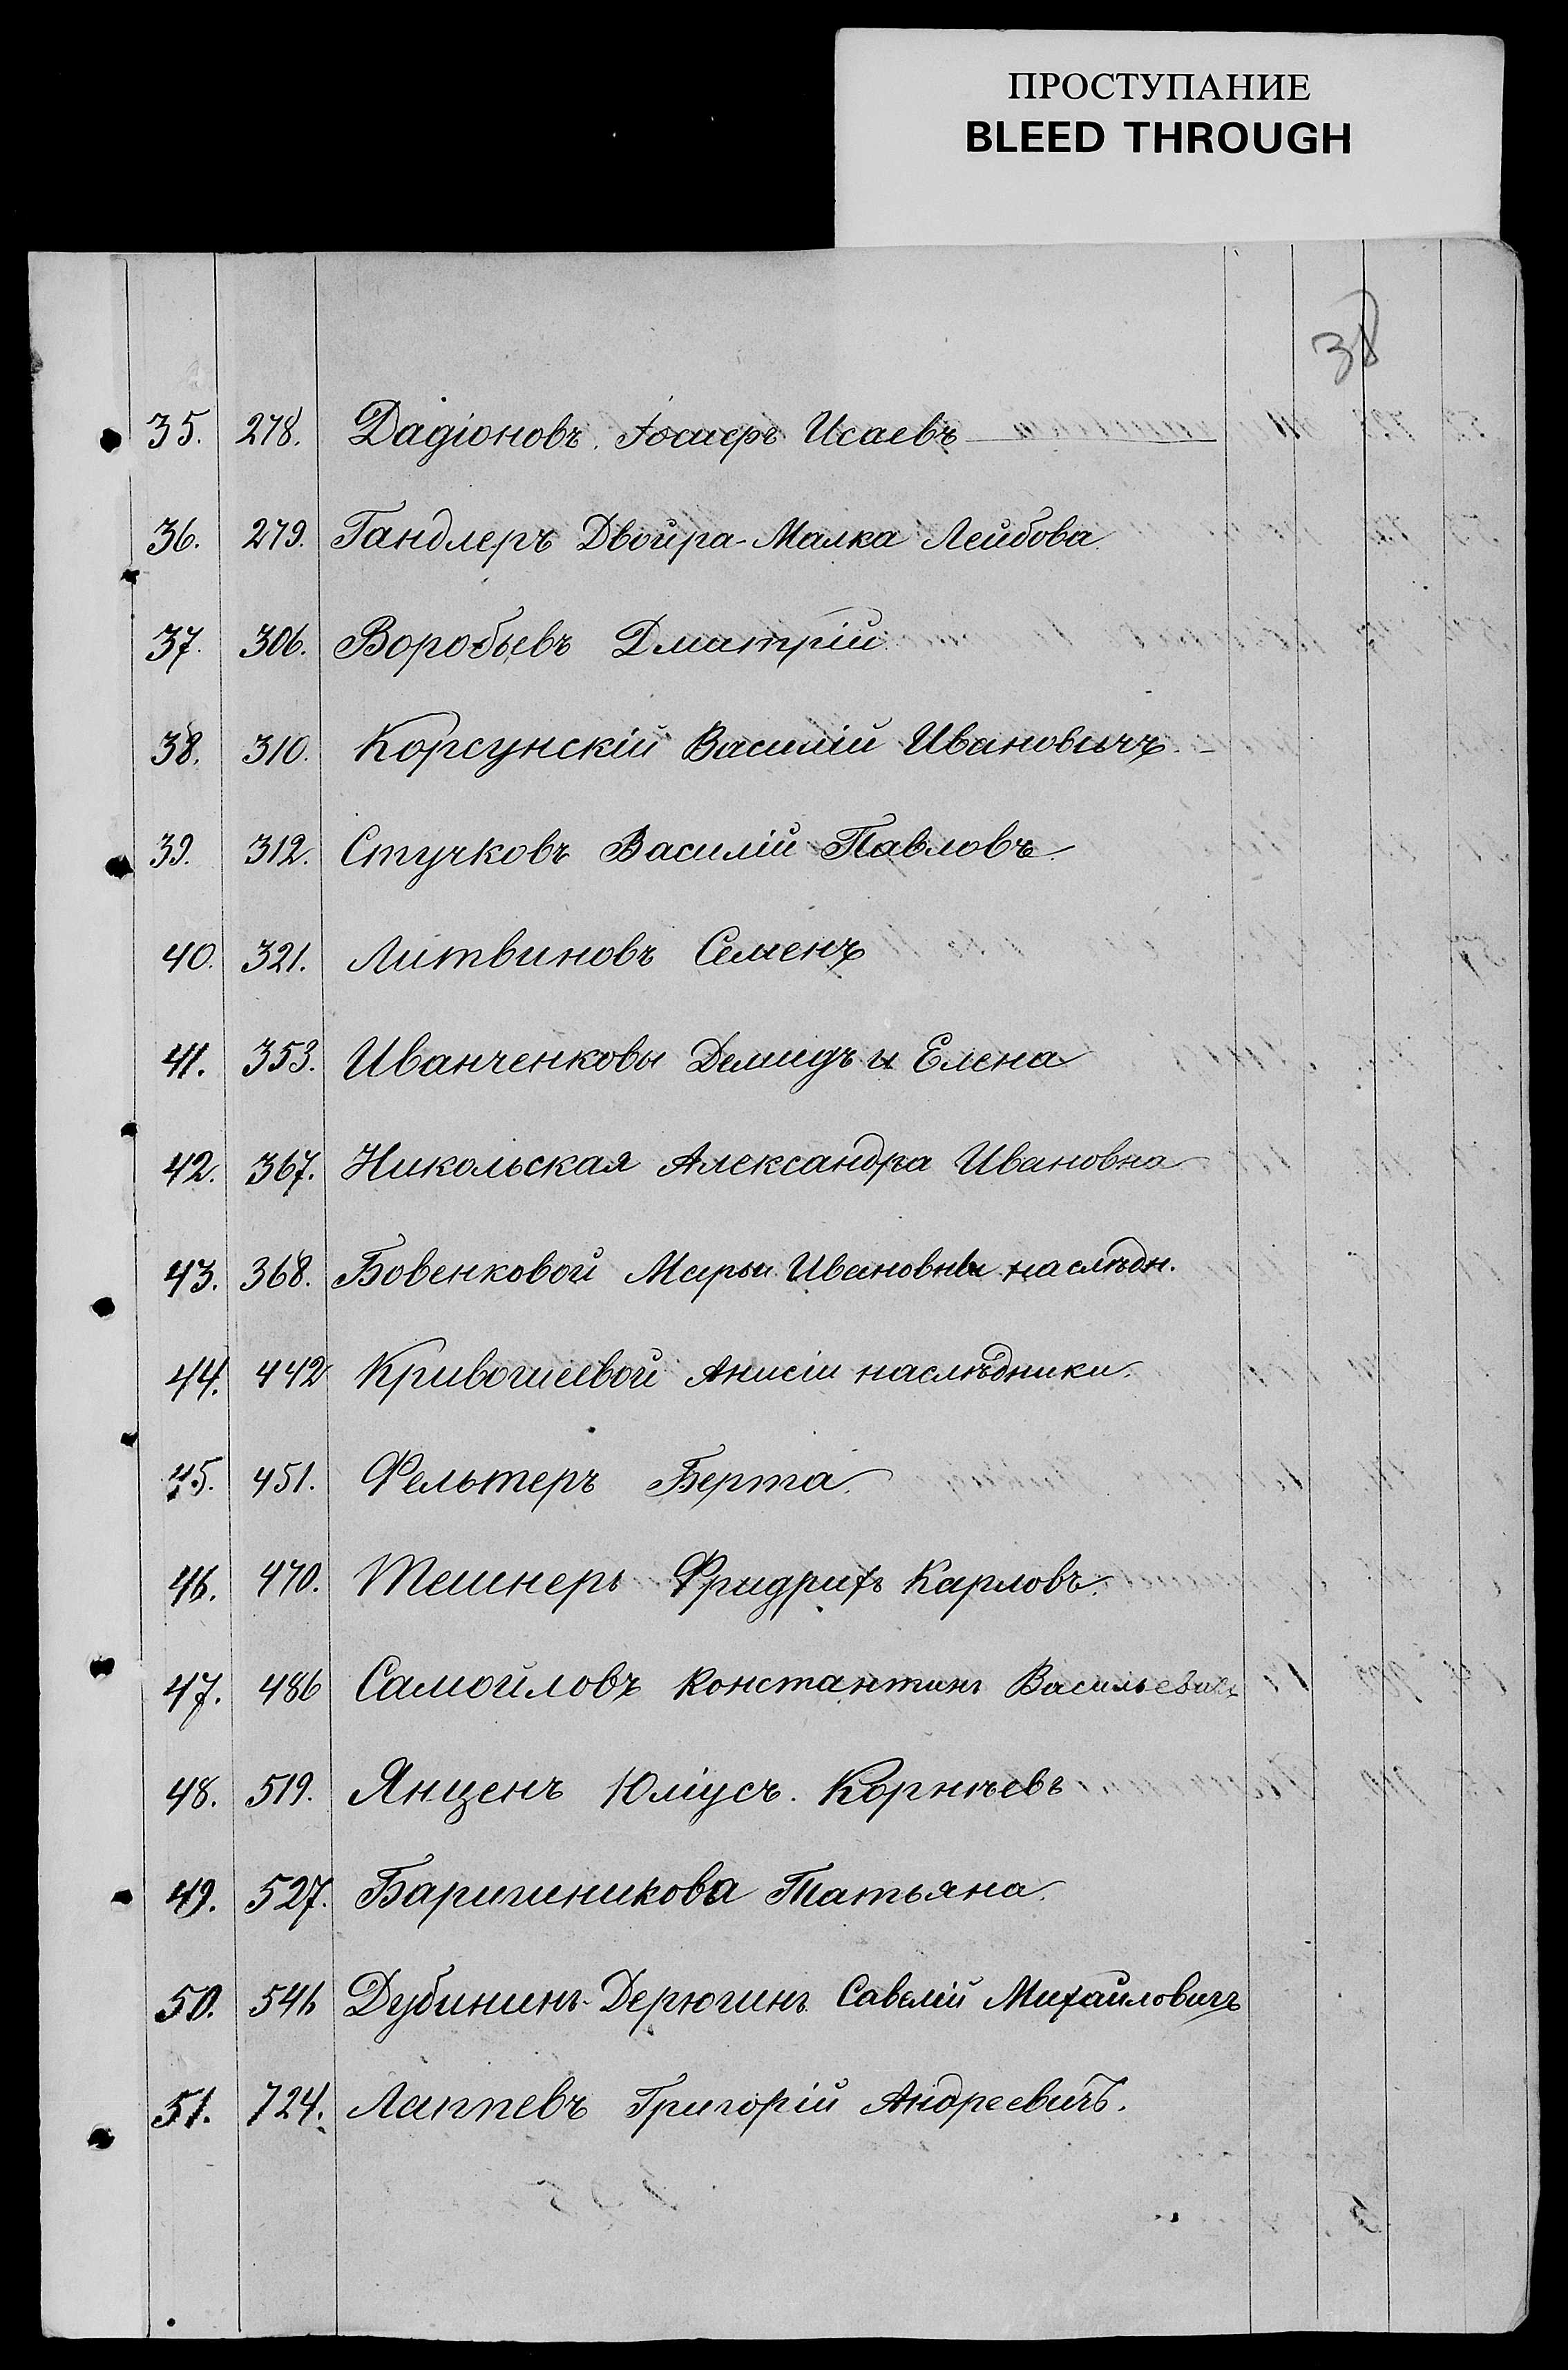 ПРОСТУПАНИЕ
BLEED THROUGH
38
35. 278. Дадіоновъ Исаевъ
36. 279. Гандлеръ Двойра-Малка Лейбова
37. 306. Воробьевъ Дматрій
38. 310. Корсунскій Василій Ивановичъ
39. 312. Стучковъ Василій Павловъ
40. 321. Литвиновъ Семенъ
41. 353. Иванченковы Демидъ и Елена
42. 367. Никольская Александра Ивановна
43. 368. Бовенковой Марьи Ивановны наслѣдн.
44. 442 Кривошеевой Анисіи наслѣдники.
45. 451. Фельтеръ Берта
46. 470. Фридрихъ Карловъ.
47. 486 Самойловъ Константинъ Васильевичъ
48. 519. Янценъ Юліусъ. Корнѣевъ
49. 527. Баришникова Татьяна.
50. 546 Дубининъ-Дерюгинъ Савелій Михайловичъ
51. 724. Лаптевъ Григорій Андреевичъ.